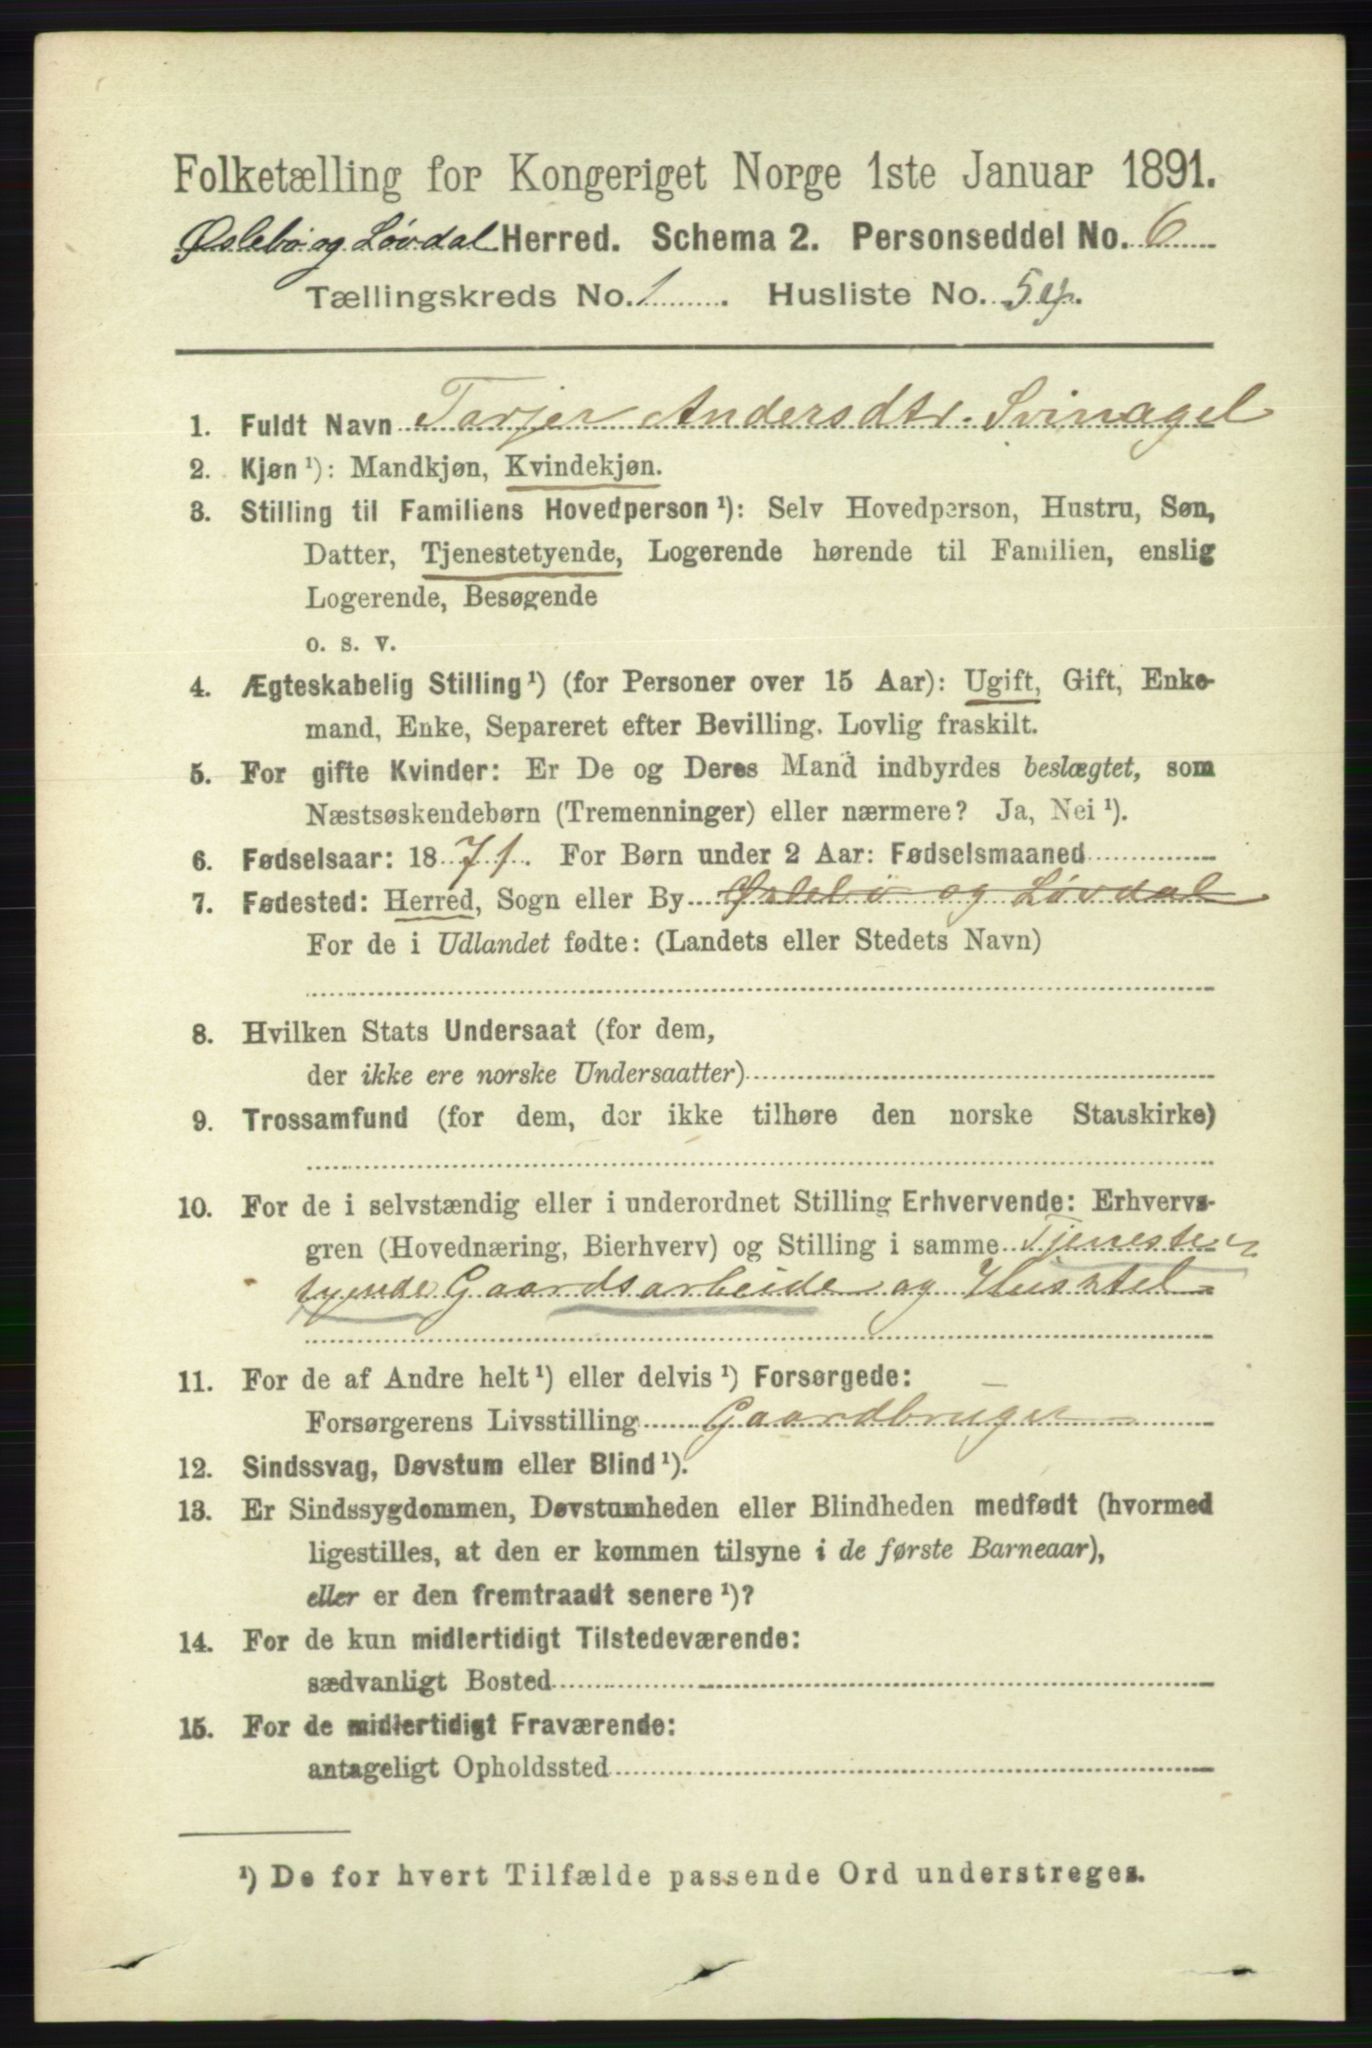 Folketælling for Kongeriget Norge 1ste Januar 1891.
Øslebø og Løvdal Herred. Schema 2. Personseddel No. 6
Tællingskreds No. 1. Husliste No. 5
1. Fuldt Navn Torjer Andersdtr. Svinagel
2. Kjøn ¹): Mandkjøn, Kvindekjøn.
3. Stilling til Familiens Hovedperson ¹): Selv Hovedperson, Hustru, Søn,
Datter, Tjenestetyende, Logerende hørende til Familien, enslig
Logerende, Besøgende
o. s. v.
4. Ægteskabelig Stilling ¹) (for Personer over 15 Aar): Ugift, Gift, Enke-
mand, Enke, Separeret efter Bevilling. Lovlig fraskilt.
5. For gifte Kvinder: Er De og Deres Mand indbyrdes beslægtet, som
Næstsøskendebørn (Tremenninger) eller nærmere? Ja, Nei ¹).
6. Fødselsaar: 1871. For Børn under 2 Aar: Fødselsmaaned
7. Fødested: Herred, Sogn eller By Øslebø og Løvdal
For de i Udlandet fødte: (Landets eller Stedets Navn)
8. Hvilken Stats Undersaat (for dem,
der ikke ere norske Undersaatter)
9. Trossamfund (for dem, der ikke tilhøre den norske Statskirke)
10. For de i selvstændig eller i underordnet Stilling Erhvervende: Erhvervs-
gren (Hovednæring, Bierhverv) og Stilling i samme Tjeneste-
tyende Gaardsarbeide og Husstel
11. For de af Andre helt ¹) eller delvis ¹) Forsørgede:
Forsørgerens Livsstilling Gaardbruger
12. Sindssvag, Døvstum eller Blind ¹).
13. Er Sindssygdommen, Døvstumheden eller Blindheden medfødt (hvormed
ligestilles, at den er kommen tilsyne i de første Barneaar),
eller er den fremtraadt senere ¹)?
14. For de kun midlertidigt Tilstedeværende:
sædvanligt Bosted
15. For de midlertidigt Fraværende:
antageligt Opholdssted
¹) De for hvert Tilfælde passende Ord understreges.